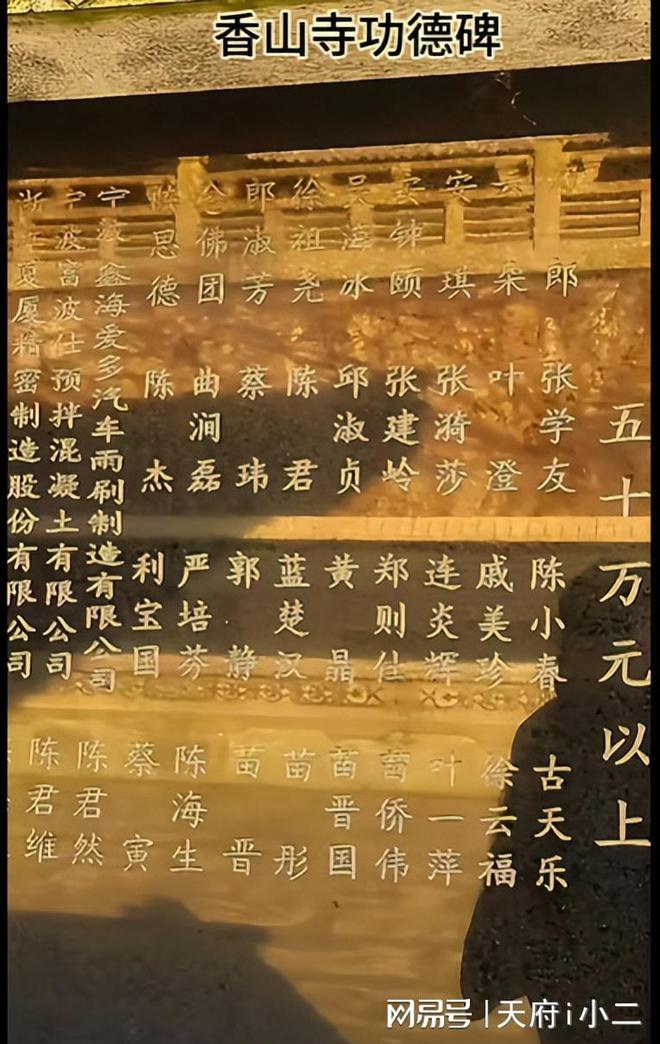 香山寺功德碑
五十万元以上
郎 张学友 陈小春 古天乐
云朵 叶澄 戚美珍 徐云福
安琪 张漪莎 连炎辉 叶一萍
安钟颐 张建岭 郑则仕 苗侨伟
吴海冰 邱淑贞 黄晶 苗晋国
徐祖尧 陈君 蓝楚汉 苗彤
郎淑芳 蔡玮 郭静 苗晋
念佛团 曲涧磊 严培芬 陈海生
思德 陈杰 利宝国 蔡寅
宁波鑫海爱多汽车雨刷制造有限公司 陈君然
宁波富波仕预拌混凝土有限公司 陈君维
浙江夏厦精密制造股份有限公司
网易号|天府i小二